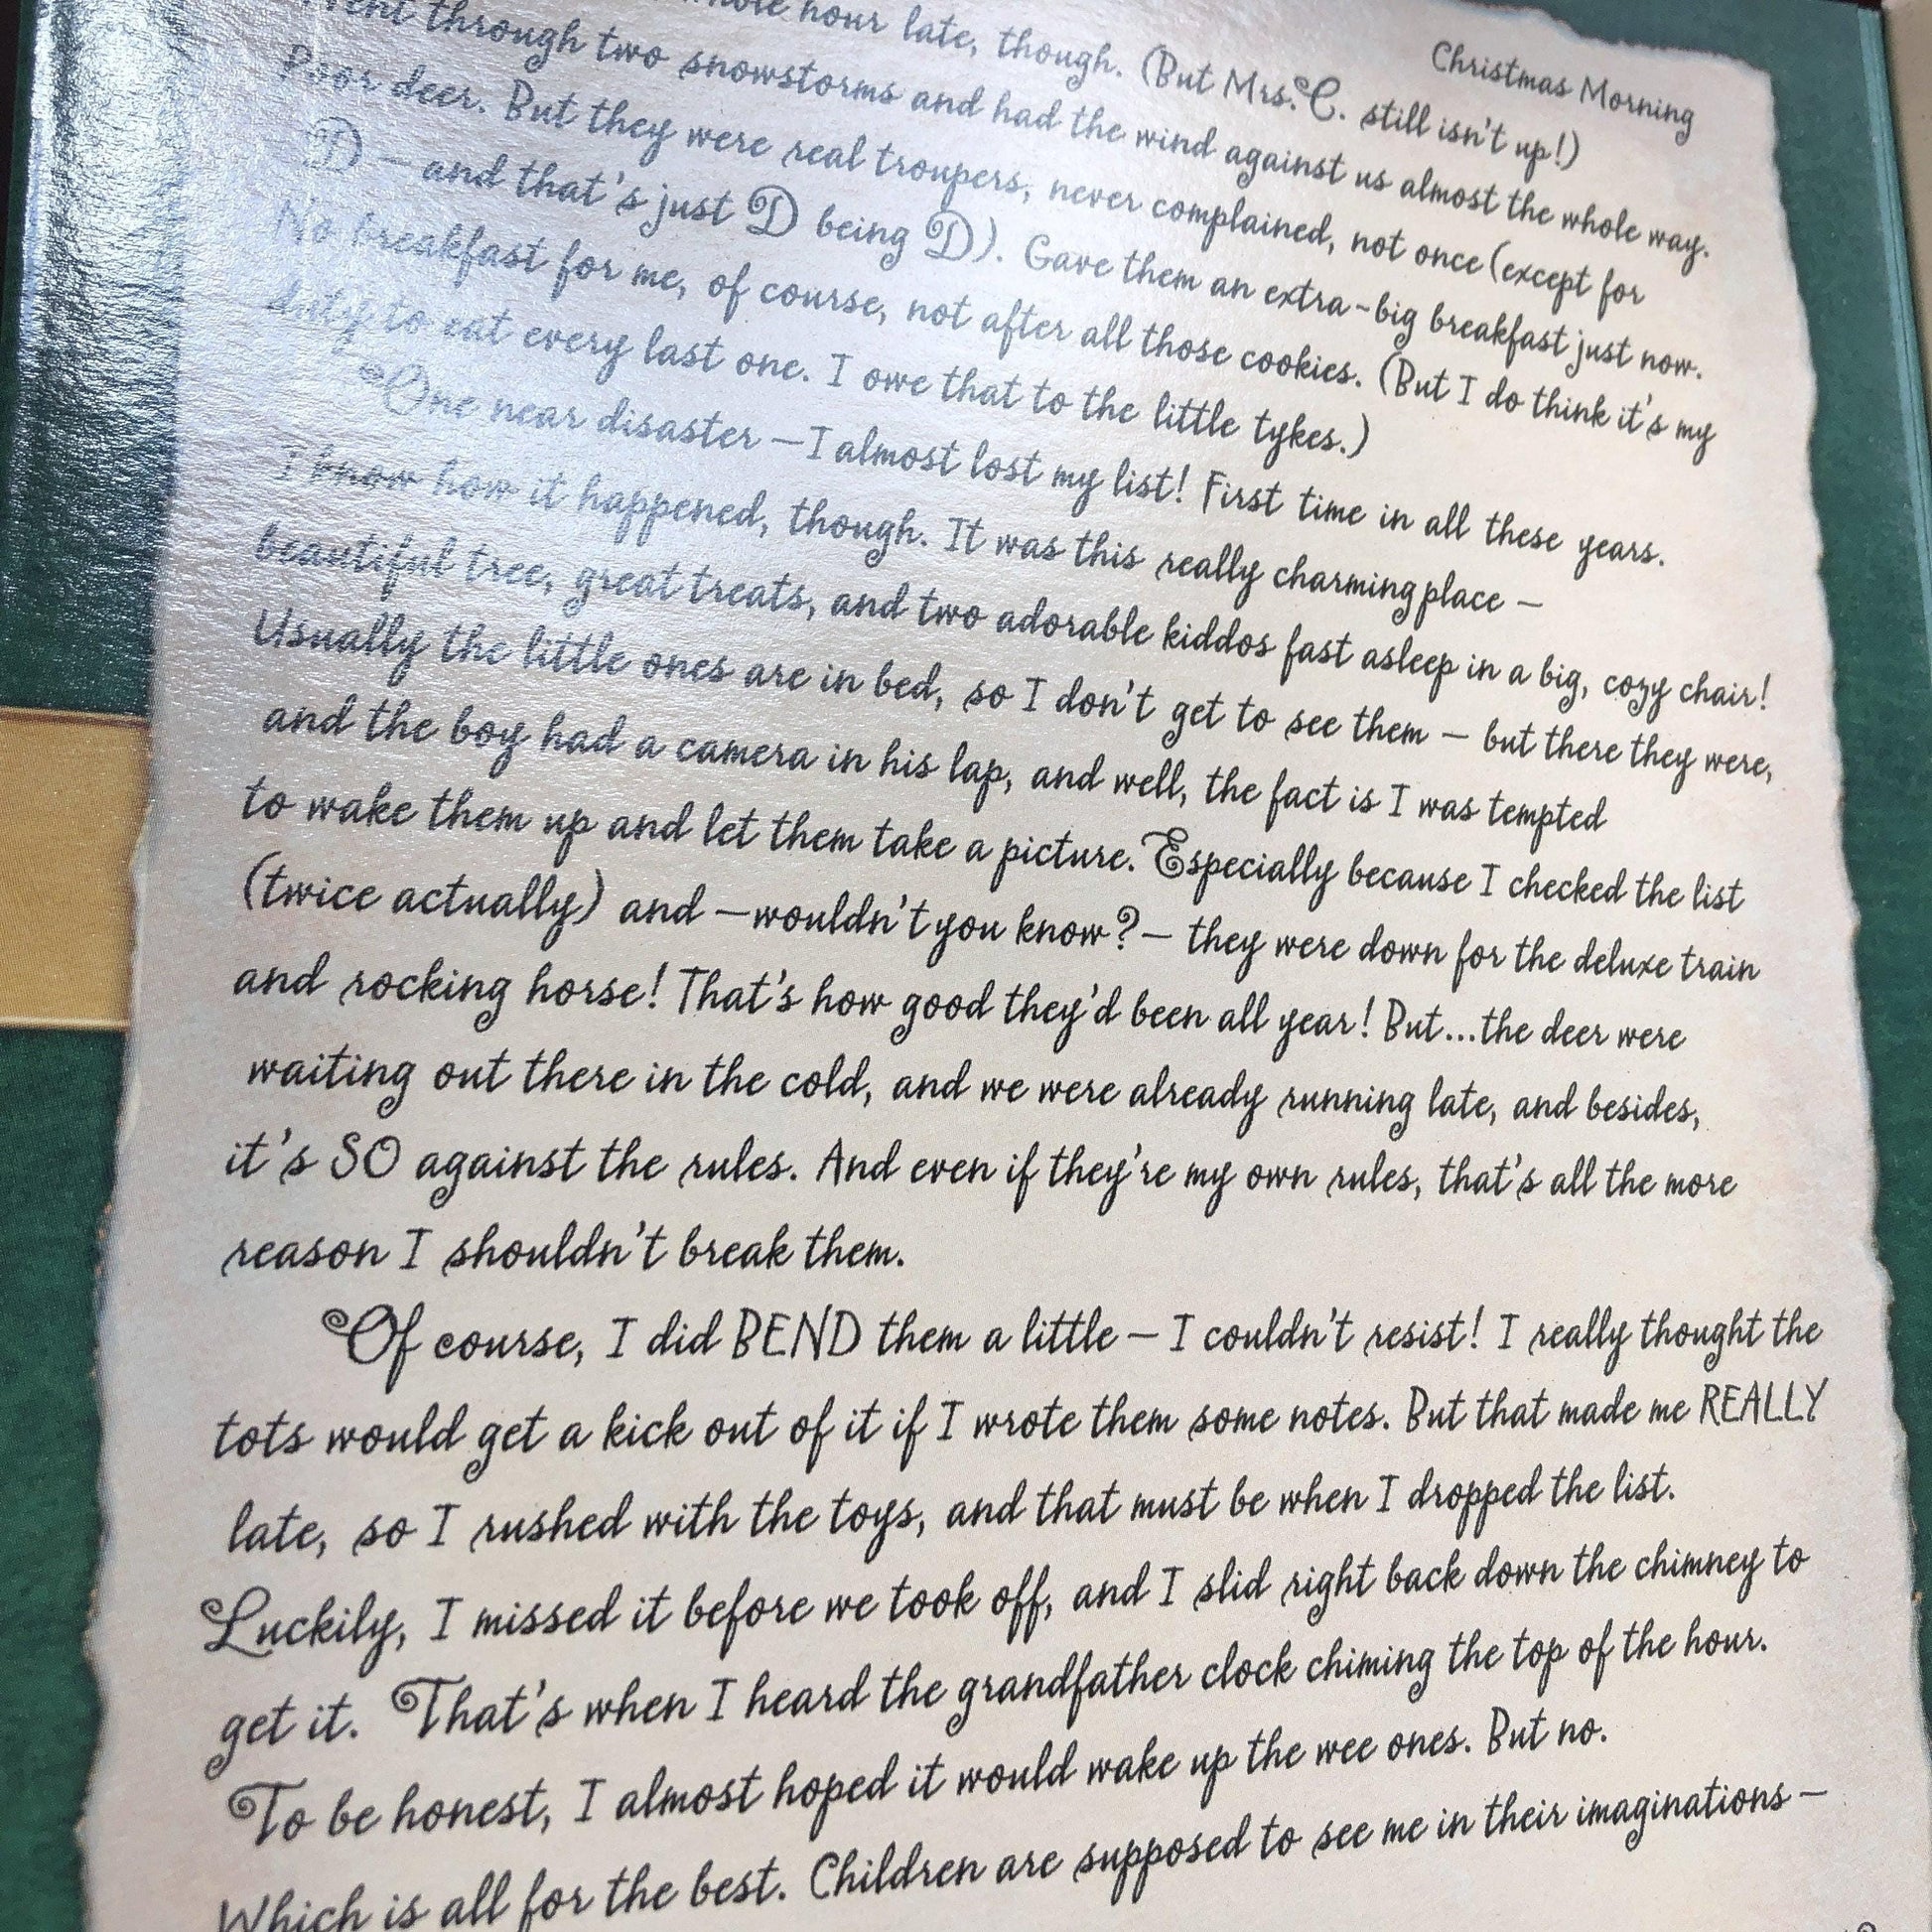 Christmas Morning
hour late, though. (But Mrs. C. still isn't up!)
through two snowstorms and had the wind against us almost the whole way.
Poor deer. But they were real troupers, never complained, not once (except for
D — and that's just D being D). Gave them an extra-big breakfast just now.
No breakfast for me, of course, not after all those cookies. (But I do think it's my
duty to eat every last one. I owe that to the little tykes.)
One near disaster — I almost lost my list! First time in all these years.
I know how it happened, though. It was this really charming place —
beautiful tree, great treats, and two adorable kiddos fast asleep in a big, cozy chair!
Usually the little ones are in bed, so I don't get to see them — but there they were,
and the boy had a camera in his lap, and well, the fact is I was tempted
to wake them up and let them take a picture. Especially because I checked the list
(twice actually) and — wouldn't you know? — they were down for the deluxe train
and rocking horse! That's how good they'd been all year! But...the deer were
waiting out there in the cold, and we were already running late, and besides,
it's SO against the rules. And even if they're my own rules, that's all the more
reason I shouldn't break them.
Of course, I did BEND them a little — I couldn't resist! I really thought the
tots would get a kick out of it if I wrote them some notes. But that made me REALLY
late, so I rushed with the toys, and that must be when I dropped the list.
Luckily, I missed it before we took off, and I slid right back down the chimney to
get it. That's when I heard the grandfather clock chiming the top of the hour.
To be honest, I almost hoped it would wake up the wee ones. But no.
Which is all for the best. Children are supposed to see me in their imaginations —